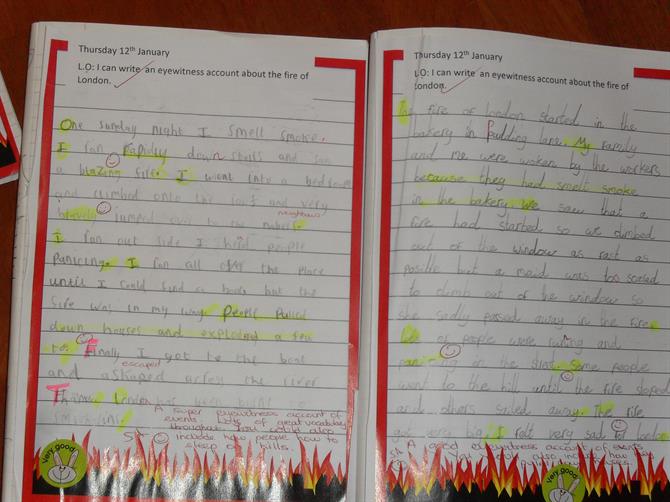 Thursday 12th January
L.O: I can write an eyewitness account about the fire of
London.
One sunday night I smell smoke.
I ran Rapidly down stairs and saw
a blazing fire. I went into a bedroom
and climbed onto the roof and very
jumped over to the
neighbours
I ran out side I people
panicing. I ran all over the place
until I could find a boat but the
fire was in my way. People Pulled
down houses and exploded a few
Finally I got to the boat
escaped
and the river
Thames London has been
A super eyewitness account of
events. Lots of great vocabulary
throughout. You could also
include how people how to
sleep on hills.
Very good
Thursday 12th January
L.O: I can write an eyewitness account about the fire of
London.
The fire of london started in the
bakery in Pudding lane. My family
and me were woken by the workers
because they had smelt smoke
in the bakery. We saw that a
fire had started so we climbed
out of the window as fast as
but a maid was too scared
to climb out of the window so
she sadly passed away in the fire.
of people were and
in the Some people
went to the hill until the fire stoped
and others sailed away. The fire
got very big I felt very sad for london
A good eyewitness account of events.
You could also
Very good